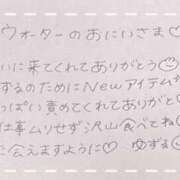 ウォーターのおにいさま♡
いに来てくれてありがとう
するのためにNewアイテム
っぱい責めてくれてありがと
仕事ムリせず沢山食べてね
に会えますように♡ ゆずる